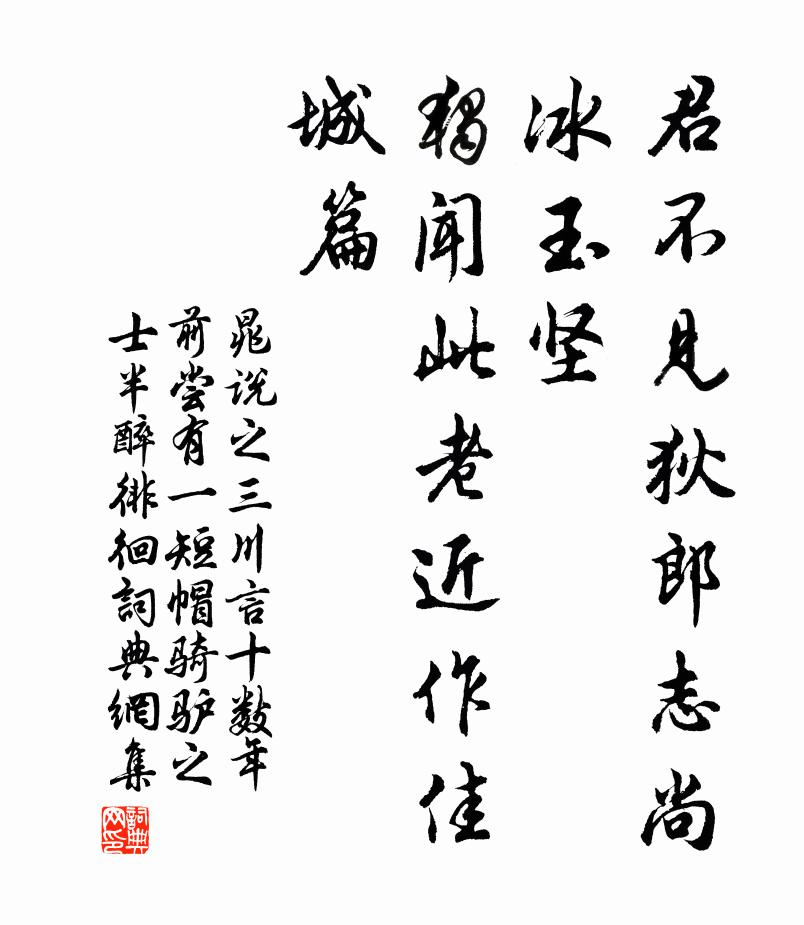 君不见狄郎志尚
冰玉坚
独闻此老近作佳
城篇
晁说之三川言十数年
前尝有一短帽骑驴之
士半醉徘徊詞典網集
詞典网印